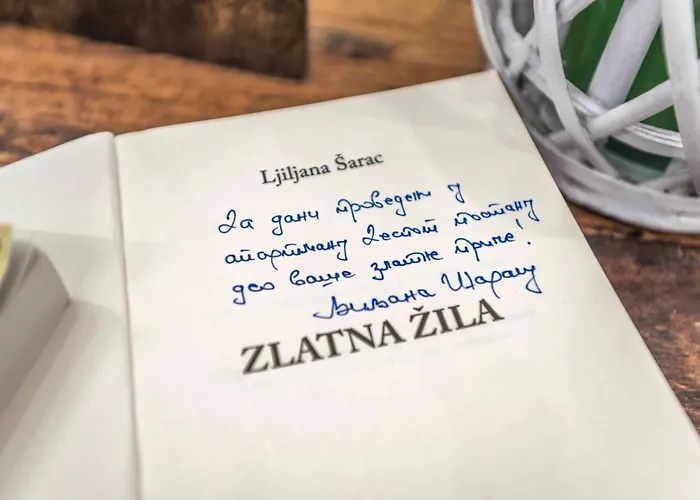 Ljiljana Šarac
Да дани проведени у
апартману Zestom постану
део ваше златне приче!
Љиљана Шарац
ZLATNA ŽILA